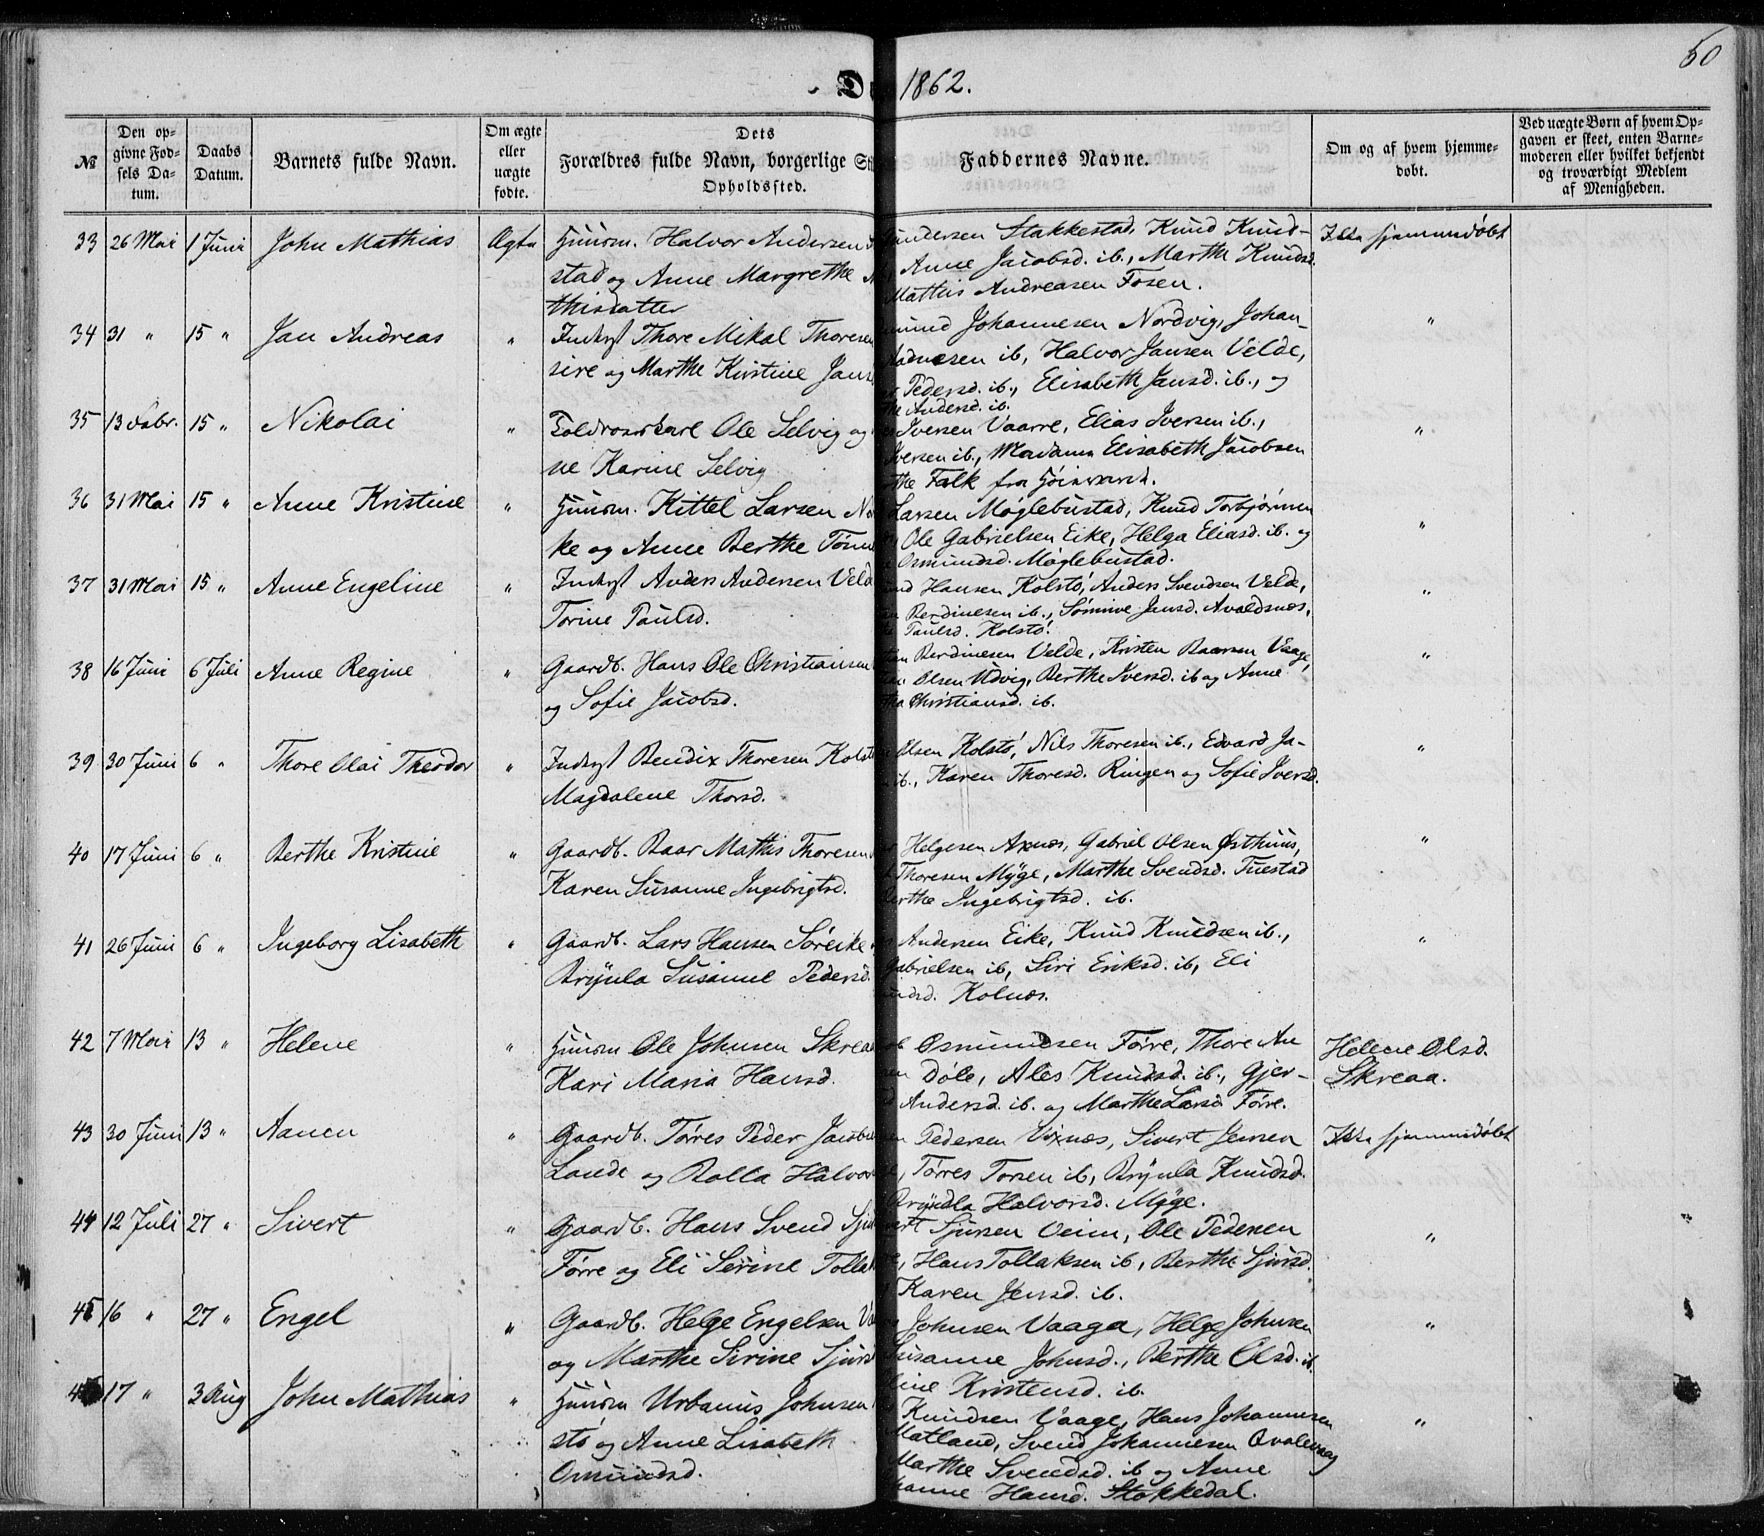 50
1862.
№
Den op-
givne Fød-
sels Da-
tum.
Daabs
Datum.
Barnets fulde Navn.
Om ægte
eller
uægte
fødte.
Dets
Forældres fulde Navn, borgerlige
Opholdssted.
Faddernes Navne.
Om og af hvem hjemme-
døbt.
Ved uægte Børn af hvem Op-
gaven er skeet, enten Barne-
moderen eller hvilket bekjendt
og troværdigt Medlem
af Menigheden.
33 26 Mai 1 Juni John Mathias Ægte Huusm. Halvor Andersen
stad og Anne Margrethe
thisdatter
Gundersen Stakkestad, Knud Knud-
Anne Jacobsd. ib., Marthe Knudsd.
Mattis Andreasen Fosen.
Ikke hjemmedøbt
34 31 " 15 " Jan Andreas " Inderst Thore Mikal Thoresen
sire og Marthe Kirstine Jans
mund Johannesen Nordvig, Johan-
Aadnesen ib, Halvor Jansen Velde,
Pedersd. ib., Elisabeth Jansd. ib., og
the Andersd. ib.
"
35 13 Febr. 15 " Nikolai " Toldroerskarl Ole Selvig og
ne Karine Selvig
Iversen Vaarre, Elias Iversen ib.,
Iversen ib., Madame Elisabeth Jacobsen
the Falk fra Høievarde.
"
36 31 Mai 15 " Anne Kristine " Huusm. Kittel Larsen
ke og Anne Berthe Tønne
Larsen Møglebustad, Knud Torbjørnsen
Ole Gabrielsen Eike, Helga Eliasd. ib. og
Osmundsd. Møglebustad.
"
37 31 Mai 15 " Anne Engeline " Inderst Anders Andersen Veld
Torine Paulsd.
Hansen Kolstø, Anders Svendsen Velde,
Berdinesen ib., Sømine Jansd. Avaldsnæs,
Paulsd. Kolstø.
"
38 16 Juni 6 Juli Anne Regine " Gaardb. Hans Ole Christiansen
og Sofie Jacobsd.
Berdinesen Velde, Kristen Baarsen Vaage,
Olsen Udvig, Berthe Iversd. ib og Anne
Christiansd. ib.
"
39 30 Juni 6 " Thore Olai Theodor " Inderst Bendix Thoresen Kolst
Magdalene Thorsd.
Olsen Kolstø, Nils Thoresen ib., Edvard Ja-
ib., Karen Thoresd. Ringen og Sofie Iversd.
"
40 17 Juni 6 " Berthe Kristine " Gaardb. Baar Mathis Thoresen
Karen Susanne Ingebrigtsd.
Helgesen Axnæs, Gabriel Olsen Østhuus,
Thoresen Myge, Marthe Svendsd. Tuestad
Berthe Ingebrigtsd. ib.
"
41 26 Juni 6 " Ingeborg Lisabeth " Gaardb. Lars Hansen Søreike
Brynla Susanne Pedersd.
Andersen Eike, Knud Knudsen ib.,
Gabrielsen ib, Siri Eriksd. ib, Eli
undsd. Kolnæs.
"
42 7 Mai 13 " Helene " Huusm Ole Johnsen Skrea
Kari Maria Hansd.
Osmundsen Førre, Thore An
Døle, Ales Knudsd. ib., Gjer-
Andersd. ib. og Marthe Larsd Førre.
Helene Olsd.
Skreaa.
43 30 Juni 13 " Aanen " Gaardb. Tørres Peder Jacobs
Lande og Bolla Halvor
Pedersen Vixnæs, Sivert Jensen
Tørres Torsen ib, Brynla Knudsd.
Bryndla Halvorsd. Myge.
Ikke hjemmedøbt
44 12 Juli 27 " Sivert " Gaardb. Hans Svend
Førre og Eli Serine Tolla
Sjursen Veim, Ole Pedersen
Hans Tollaksen ib, Berthe Sjursd.
Karen Jensd. ib.
"
45 16 " 27 " Engel " Gaardb. Helge Engelsen
og Marthe Sirine Sjurs
Johnsen Vaaga, Helge Johnsen
Susanne Johnsd., Berthe Olsd. ib
line Kristensd. ib.
"
17 " 3 Aug John Mathias " Huusm Urbanus Johnsen
stø og Anne Lisabeth
Osmundsd.
Knudsen Vaage, Hans Johannesen
Matland, Svend Johannesen Qvalevaag
Marthe Svendsd. ib og Anne
hanne Hansd. Stokkedal.
"